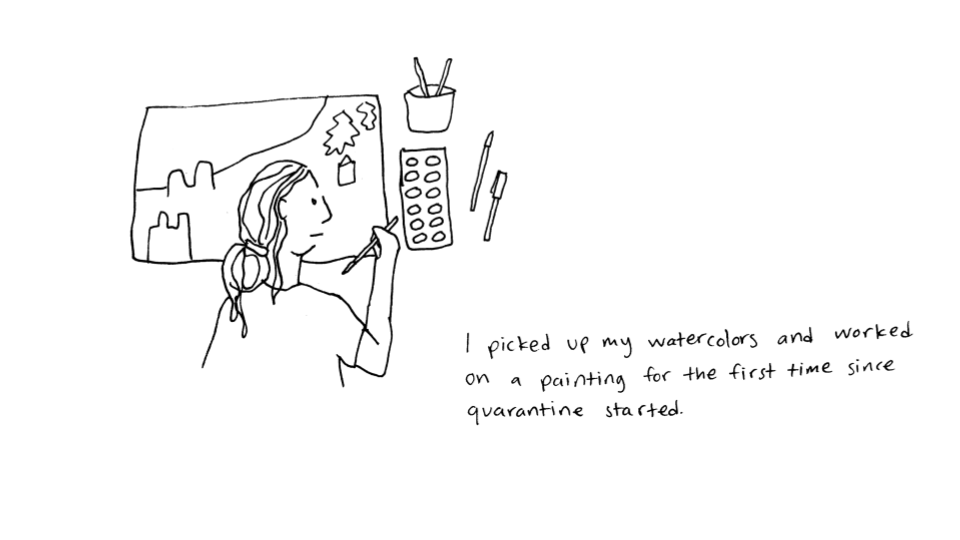 I picked up my watercolors and worked
on a painting for the first time since
quarantine started.